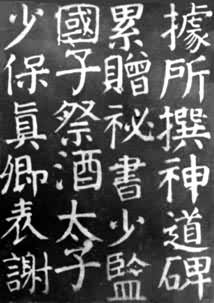 據所撰神道碑
累贈祕書少監
國子祭酒太子
少保真卿表謝